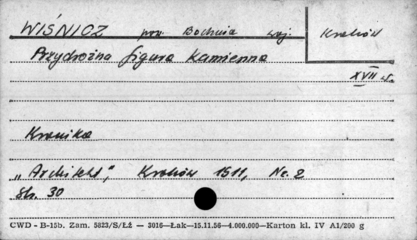 WIŚNICZ pow. Bochnia woj. Kraków
Przydrożna figura kamienna
XVII w.
Kronika
„Architekt", Kraków 1911, Nr. 2
Str. 30
CWD - B-15b. Zam. 5823/S/Łź — 3016—Łak—15.11.56—4.000.000—Karton kl. IV A1/200 g